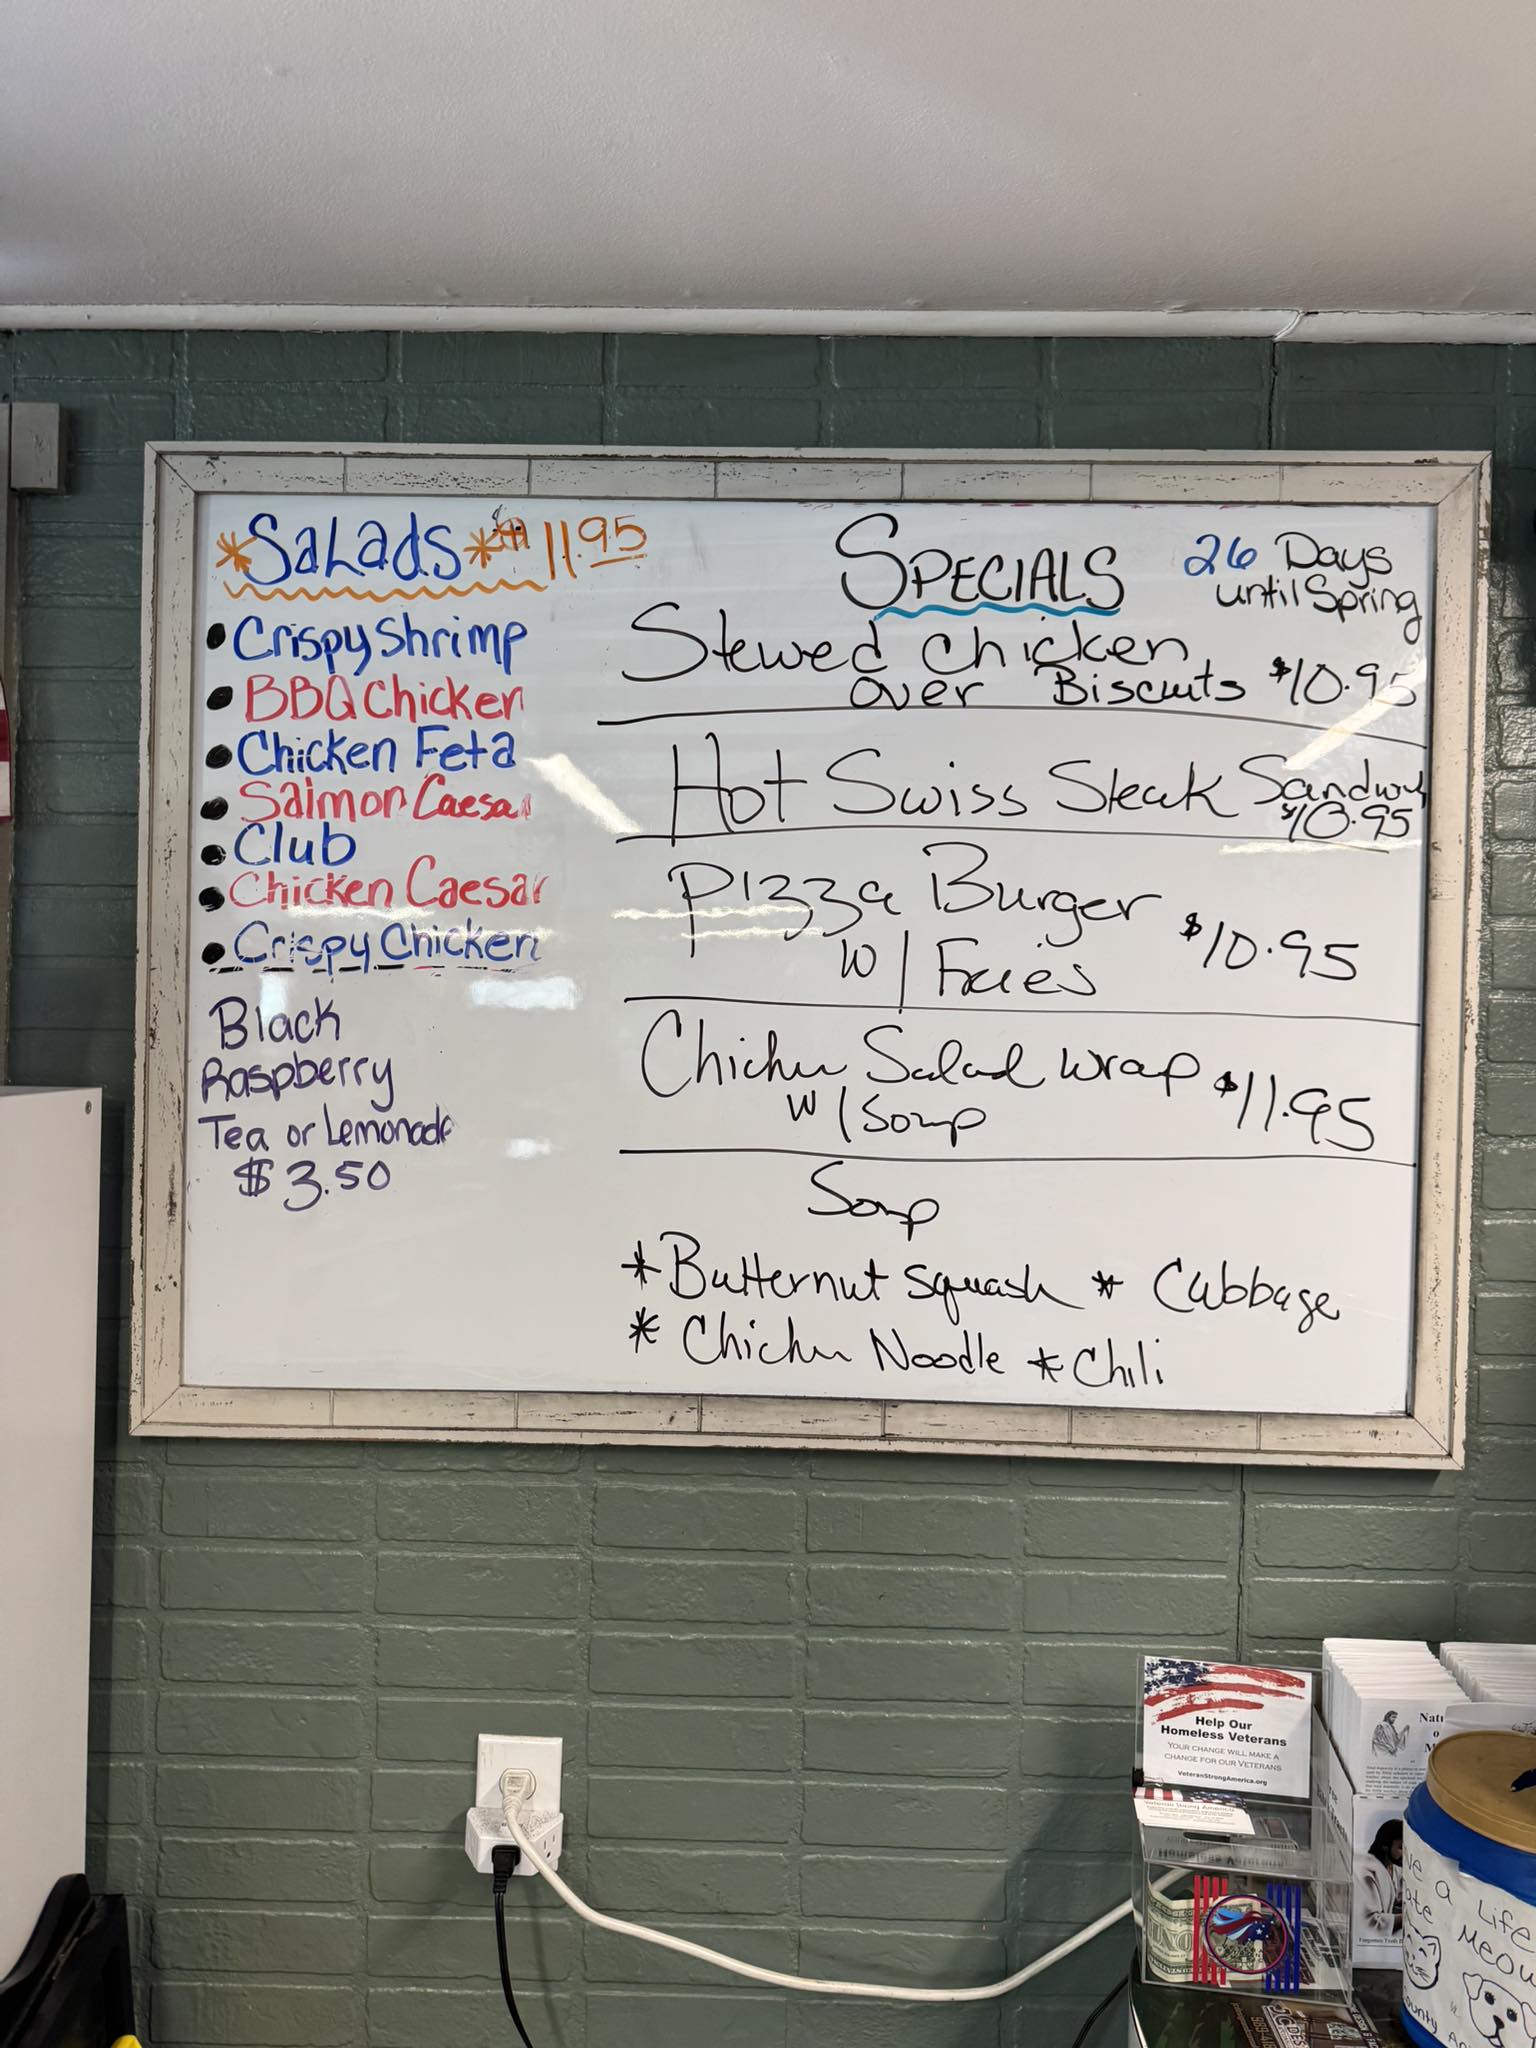 *Salads* $11.95
• Crispy Shrimp
• BBQ Chicken
• Chicken Feta
• Salmon Caesar
• Club
• Chicken Caesar
• Crispy Chicken
Black
Raspberry
Tea or Lemonade
$3.50
SPECIALS
26 Days
until Spring
Stewed Chicken
over Biscuits $10.95
Hot Swiss Steak Sandwich
$10.95
Pizza Burger
W/ Fries $10.95
Chicken Salad Wrap
W/ Soup $11.95
Soup
*Butternut Squash * Cabbage
* Chicken Noodle * Chili
Help Our
Homeless Veterans
YOUR CHANGE WILL MAKE A
CHANGE FOR OUR VETERANS
VeteranStrongAmerica.org
a Life
Meow